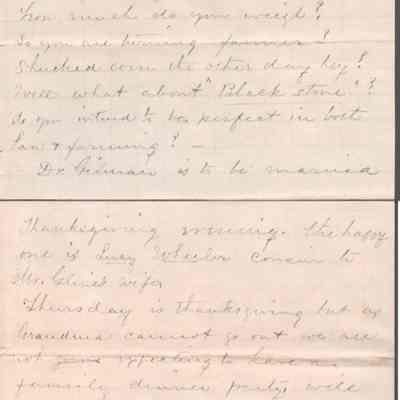 How much do you weigh?
So you are turning farmer!
Shucked corn the other day hey!
Well what about "Black stone"?
do you intend to be perfect in both
Law & farming? —
Dr. Gilman is to be married
Thanksgiving evening. The happy
one is Lucy Wheeler cousin to
Mr. wife
Thursday is thanksgiving but as
Grandma cannot go out we are
not expecting to have a
family dinner party, will